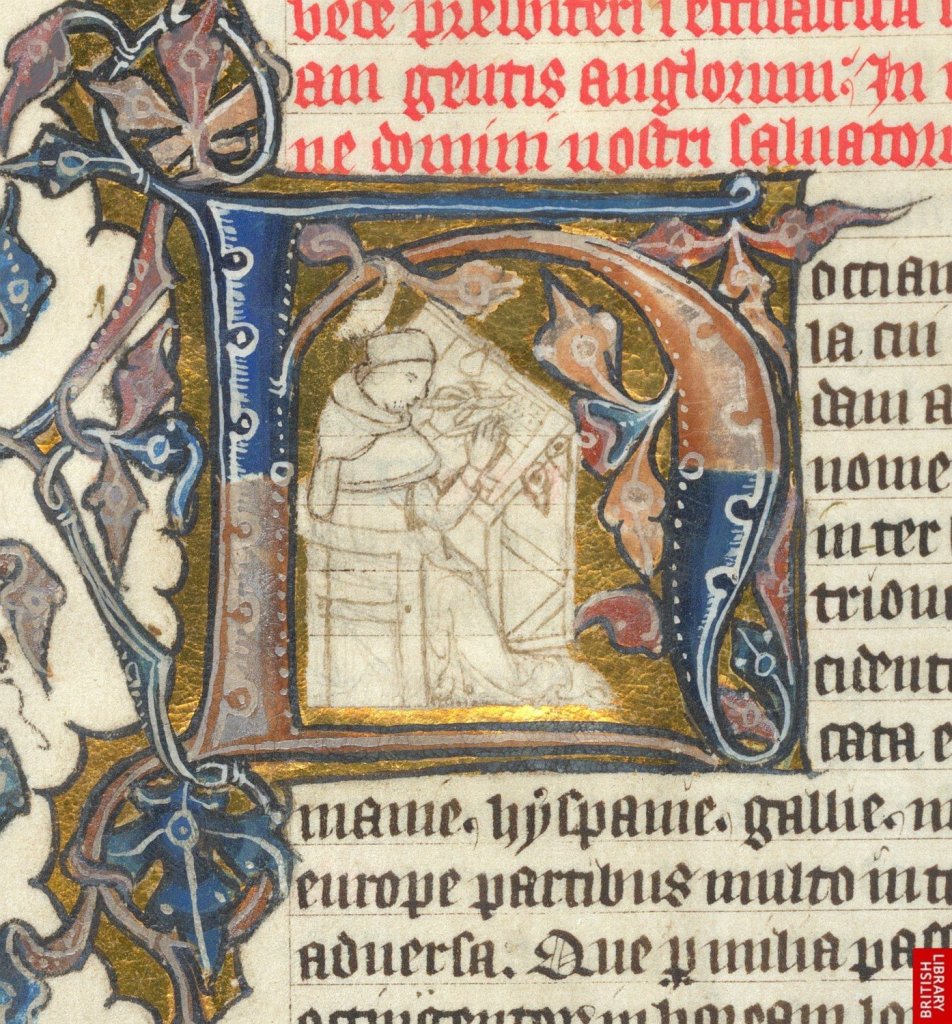 bede presbiteri i ecclesiastica
am gentis anglorum. In n
ne domini nostri saluatori
occian
la cui
dam a
nome
inter
trionu
cident
cata e
manie. hyspanie. gallie. m
europe partibus multo int
aduersa. Que p milia pass
octingentorum in boream lo
BRITISH
LIBRARY